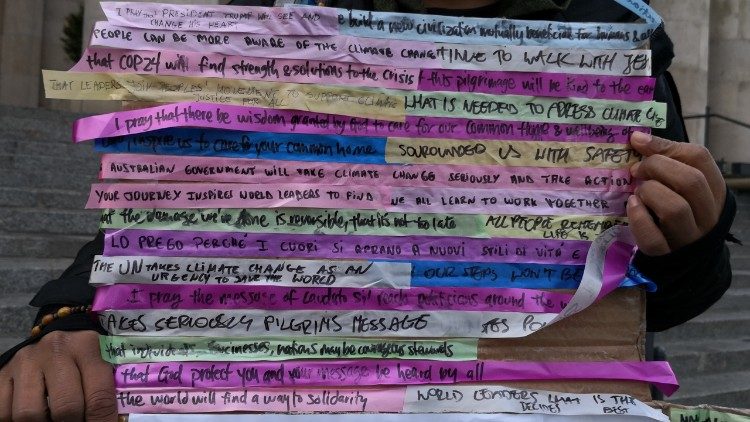 I PRAY THAT PRESIDENT TRUMP WILL SEE AND CHANGE HIS HEART
build a new civilization mutually beneficial for humans &
PEOPLE CAN BE MORE AWARE OF THE CLIMATE CHANGE
TINUE TO WALK WITH
that COP24 will find strength & solutions to the crisis
this pilgrimage will be kind to the
THAT LEADERS PEOPLES' MOVEMENT TO SUPPORT CLIMATE JUSTICE FOR ALL
WHAT IS NEEDED TO ADRESS CLIMATE
I pray that there be wisdom granted by God to care for our Common Home & wellbeing of
inspire us to care for your common home
SOUROUNDED US WITH SAFETY
AUSTRALIAN GOVERNMENT WILL TAKE CLIMATE CHANGE SERIOUSLY AND TAKE ACTION
YOUR JOURNEY INSPIRES WORLD LEADERS TO FIND
WE ALL LEARN TO WORK TOGETHER
at the damage we've done is reversible, that it's not to late
ALL PEOPLE REMEMBER LIFE IS
LO PREGO PERCHÉ I CUORI SI APRANO A NUOVI STILI DI VITÁ E
THE UN TAKES CLIMATE CHANGE AS AN URGENCY TO SAVE THE WORLD
OUR STEPS WON'T BE
I pray the message of Laudato Si' reach around the
TAKES SERIOUSLY PILGRIMS MESSAGE
that individuals, businesses, nations may be courageous stewards
that God protect you and your message be heard by all
the world will find a way to solidarity
WORLD LEADERS DECIDES WHAT IS THE BEST